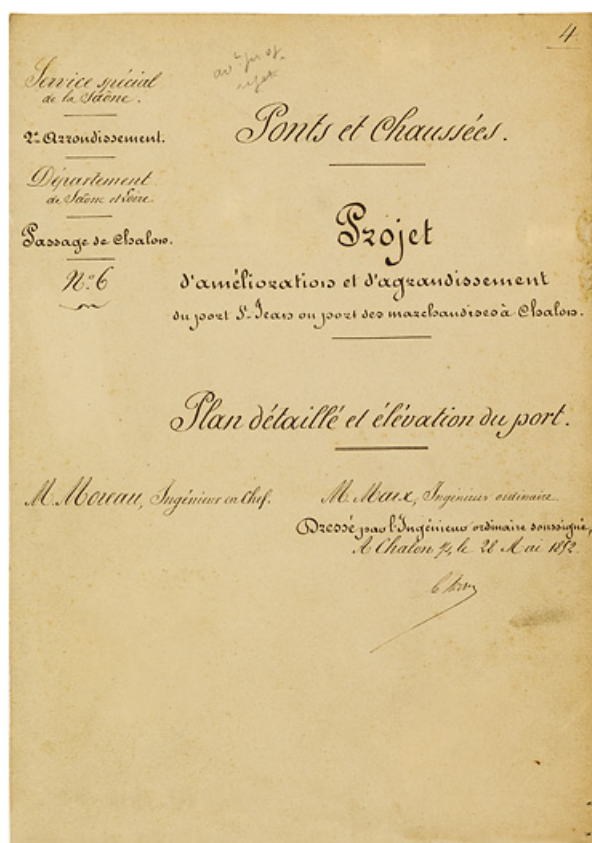 4
Service spécial
de la Saône.
2e Arrondissement.
Département
de Saône et Loire.
Passage de Chalon.
N.o 6
Ponts et Chaussées.
Projet
d'amélioration et d'agrandissement
du port St-Jean ou port des marchandises à Chalon.
Plan détaillé et élévation du port.
M. Moreau, Ingénieur en Chef.
M. Marx, Ingénieur ordinaire.
Dressé par l'Ingénieur ordinaire soussigné,
A Chalon s/s, le 28 Mai 1852.